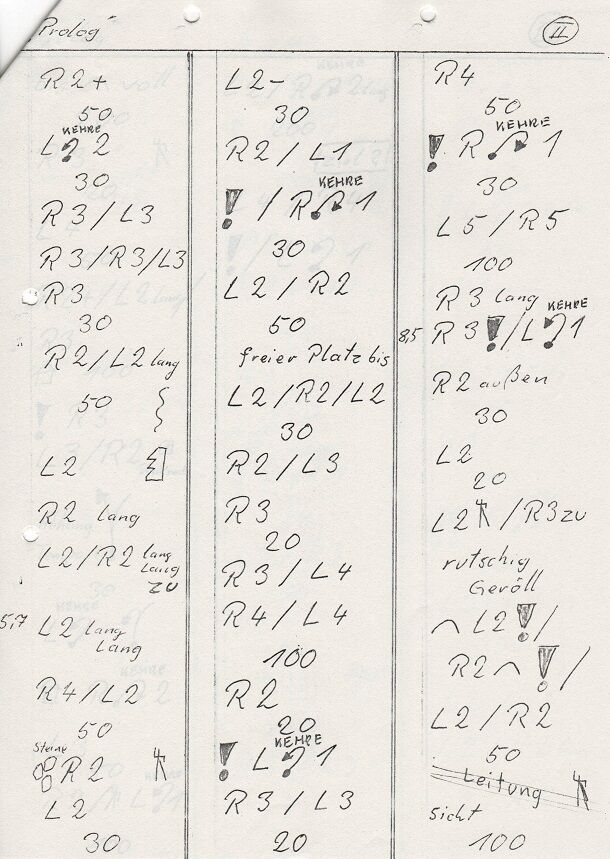 "Prolog"
II
R2+
50
KEHRE
L 2
30
R3/L3
R3/R3/L3
R3
30
R2/L2 lang
50
L2
R2 lang
L2/R2 lang
lang
zu
5,7 L2 lang
lang
R4/L2
50
Steine
R2
L2
30
L2-
30
R2/L1
KEHRE
! /R 1
30
L2/R2
50
freier Platz bis
L2/R2/L2
30
R2/L3
R3
20
R3/L4
R4/L4
100
R2
20
KEHRE
! L 1
R3/L3
20
R4
50
KEHRE
! R 1
30
L5/R5
100
R3 lang
KEHRE
8,5 R3!/L 1
R2 außen
30
L2
20
L2 /R3zu
rutschig
Geröll
L2!/
R2 !/
L2/R2
50
Leitung
Sicht
100